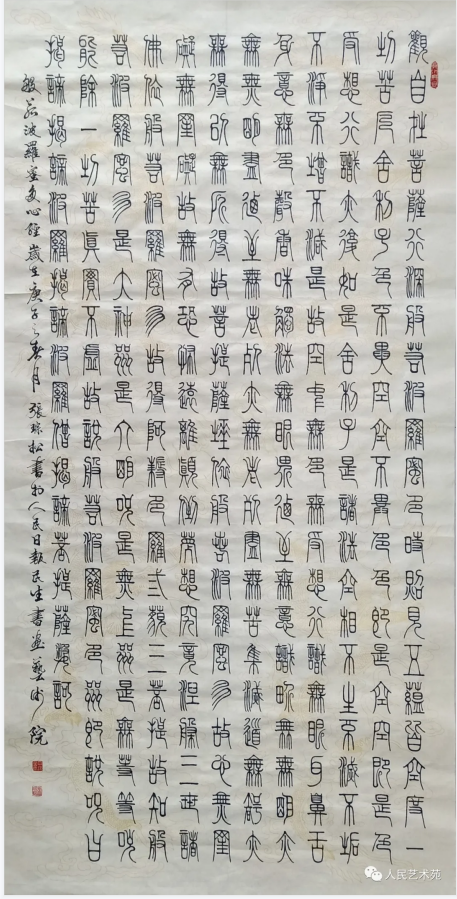 觀自在菩薩行深般若波羅蜜多時照見五蘊皆空度一
切苦厄舍利子色不異空空不異色色即是空空即是色
受想行識亦復如是舍利子是諸法空相不生不滅不垢
不淨不增不減是故空中無色無受想行識無眼耳鼻舌
身意無色聲香味觸法無眼界乃至無意識界無無明亦
無無明盡乃至無老死亦無老死盡無苦集滅道無智亦
無得以無所得故菩提薩埵依般若波羅蜜多故心無罣
礙無罣礙故無有恐怖遠離顛倒夢想究竟涅槃三世諸
佛依般若波羅蜜多故得阿耨多羅三藐三菩提故知般
若波羅蜜多是大神咒是大明咒是無上咒是無等等咒
能除一切苦真實不虛故說般若波羅蜜多咒即說咒曰
揭諦揭諦波羅揭諦波羅僧揭諦菩提薩婆訶
般若波羅蜜多心經歲在庚子之春月張松書於人民日報民生書畫藝術院
人民艺术苑